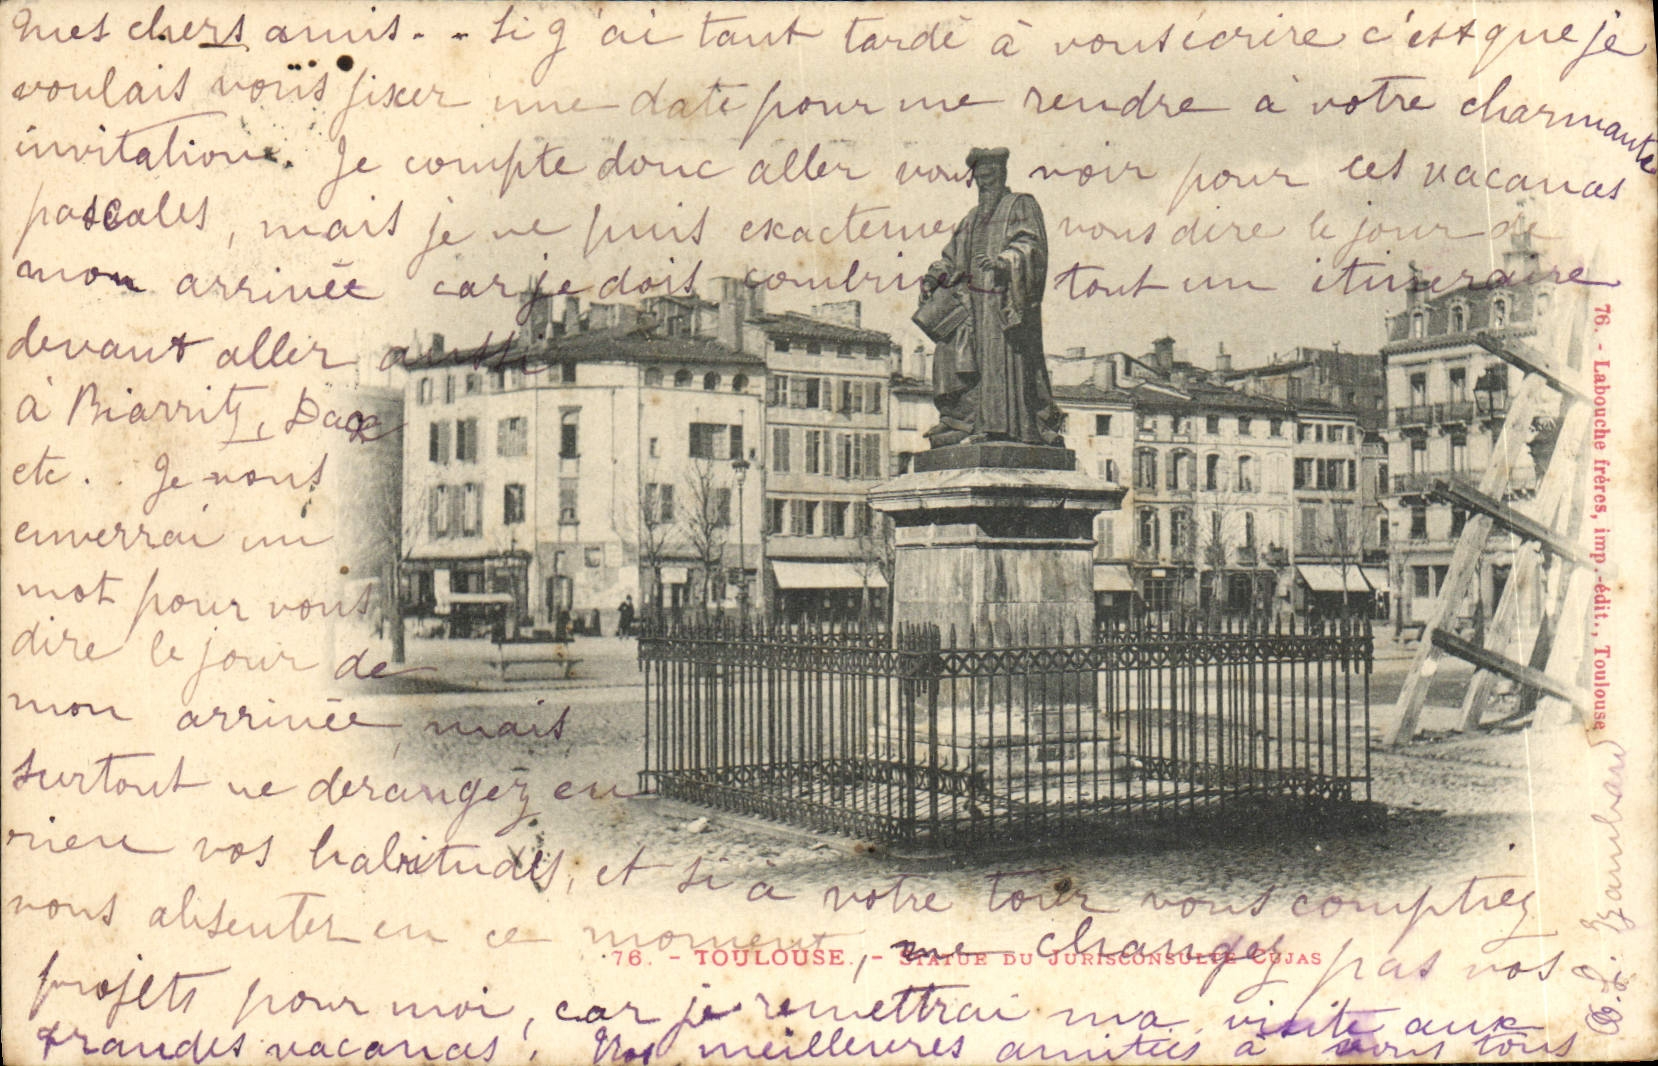 Mes chers amis. - Si j'ai tant tardé à vous écrire c'est que je
voulais vous fixer une date pour me rendre à votre charmante
invitation. Je compte donc aller vous voir pour ces vacances
pascales, mais je ne puis exactement vous dire le jour de
mon arrivée car je dois combiner tout un itineraire
devant aller aussi
à Biarritz, Dax
etc.. Je vous
enverrai un
mot pour vous
dire le jour de
mon arrivée, mais
surtout ne derangez en
rien vos habitudes, et si à votre tour vous comptiez
vous absenter en ce moment, ne changez pas vos
projets pour moi, car je remettrai ma visite aux
grandes vacances. Mes meilleures amitiés à vous tous
76. - TOULOUSE. - STATUE DU JURISCONSULTE CUJAS
76. - Labouche frères, imp.-édit., Toulouse